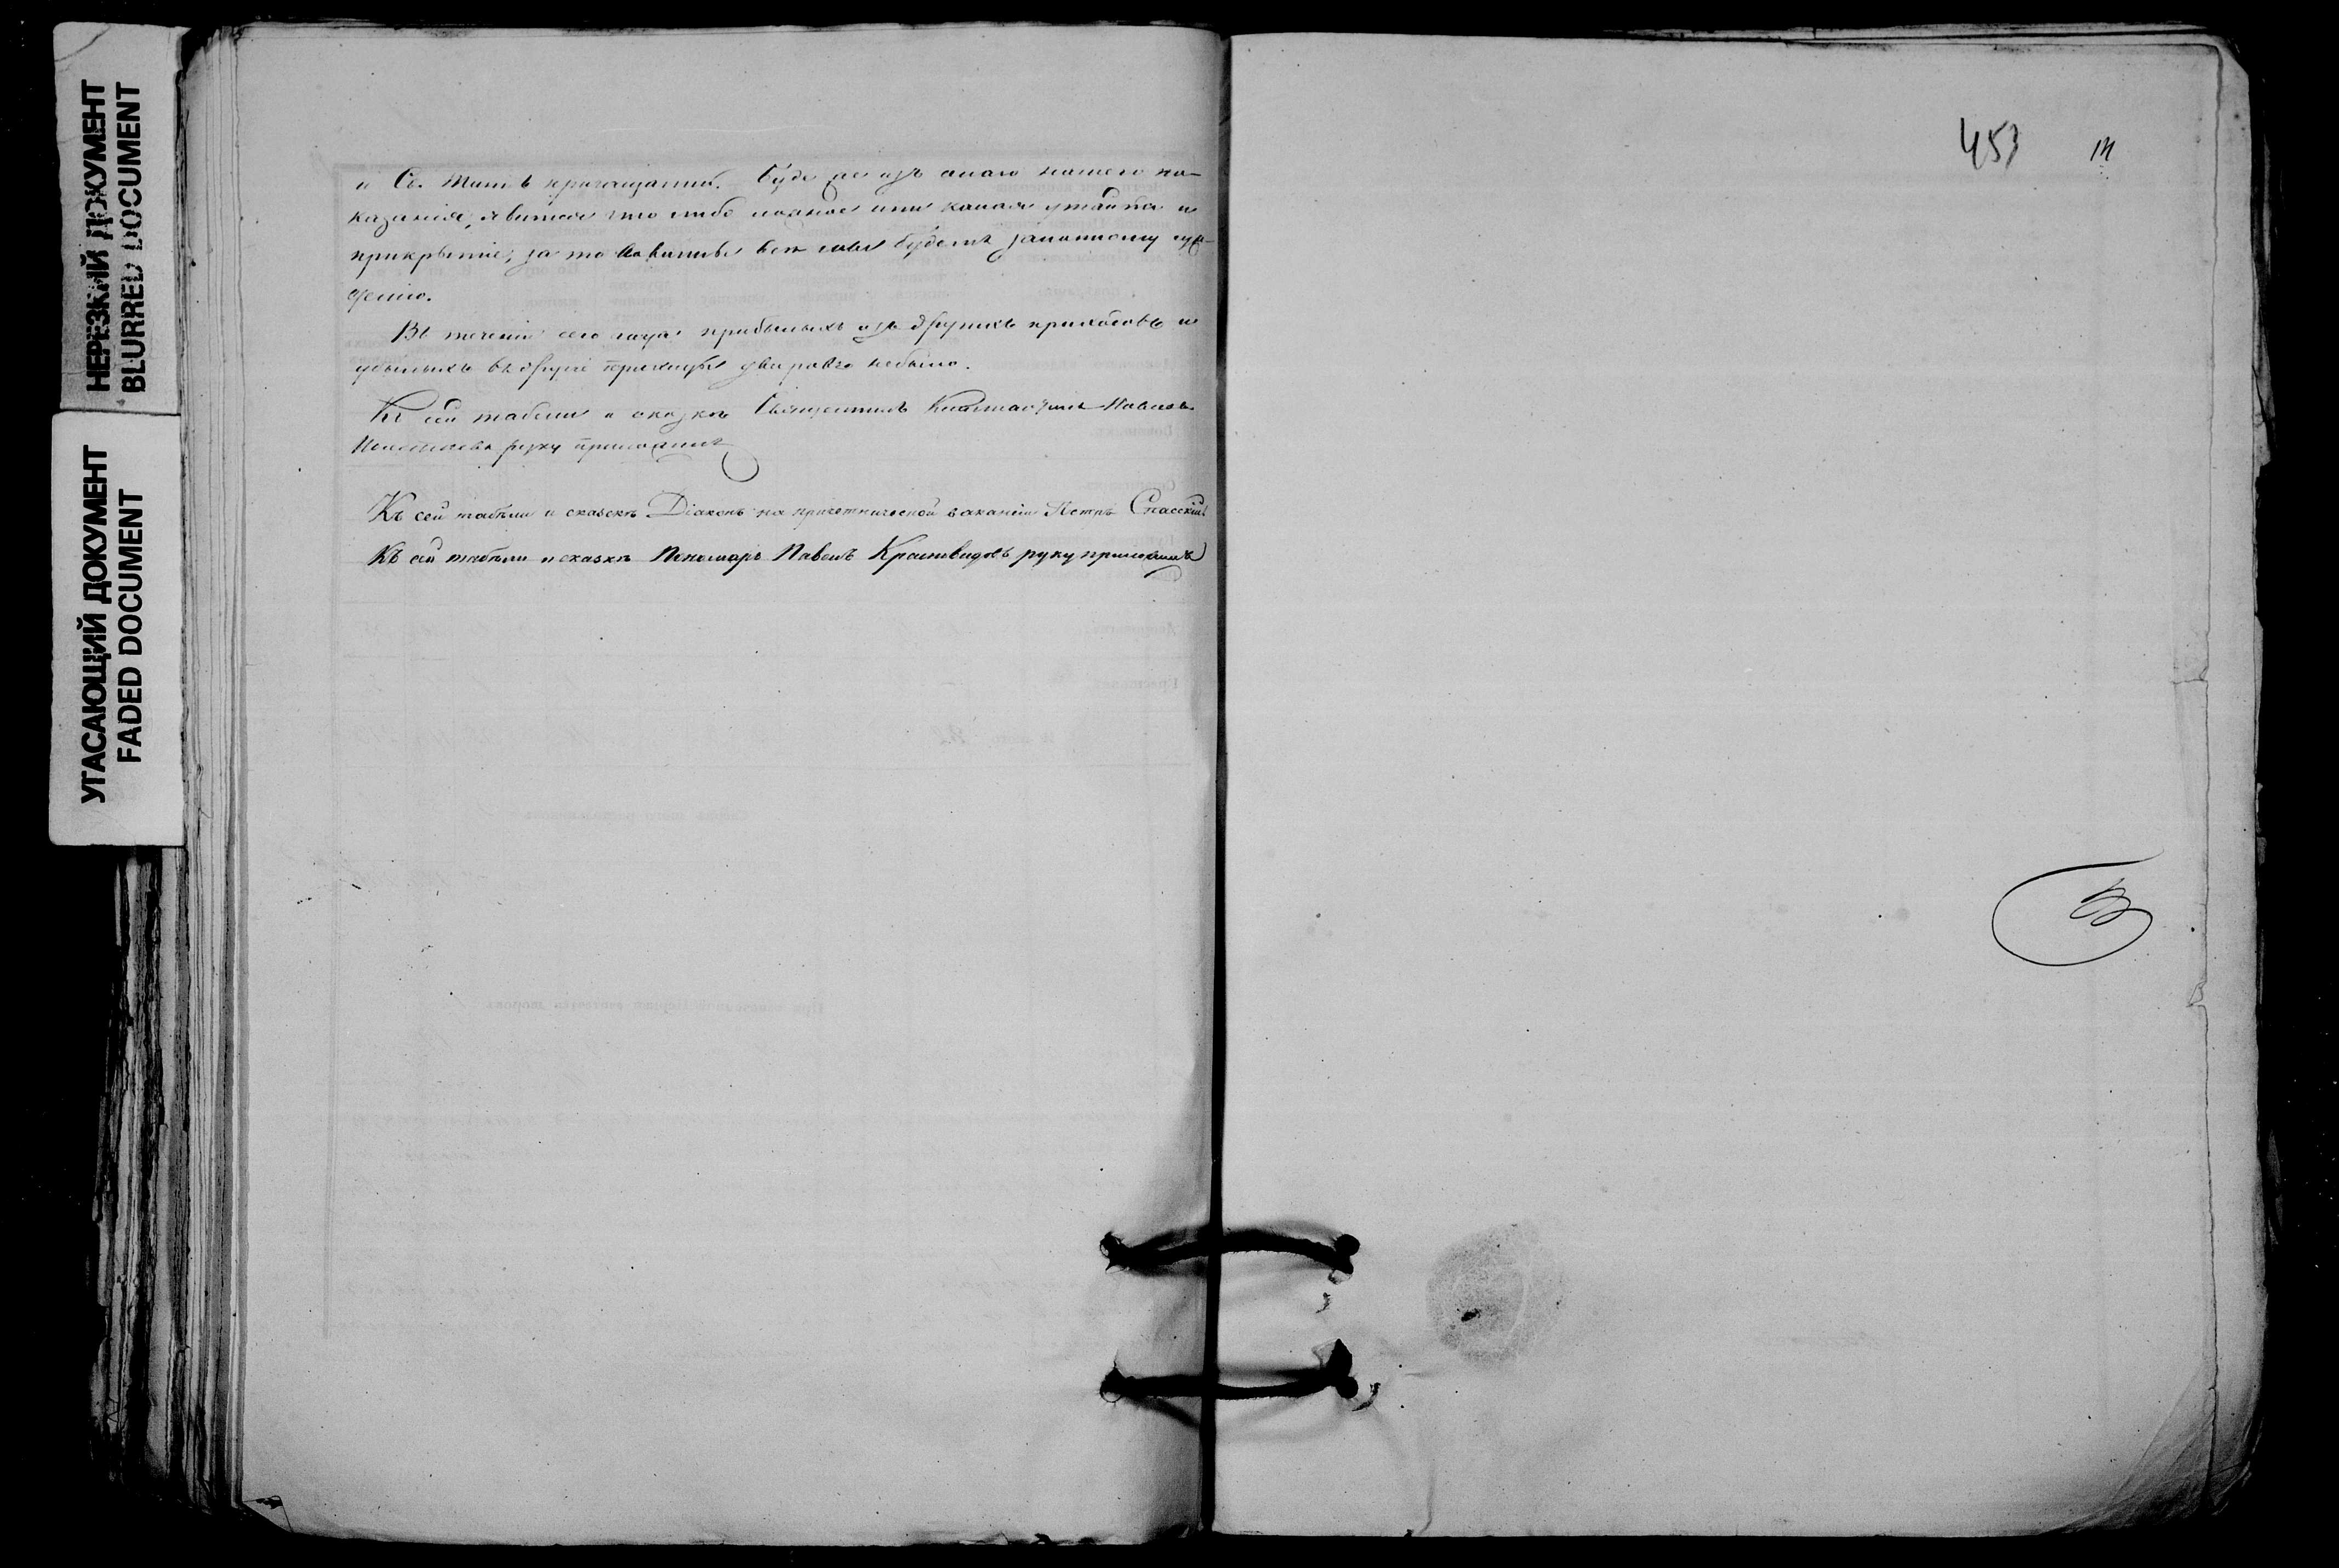 НЕРЕЗКИЙ ДОКУМЕНТ
BLURRED DOCUMENT
УГАСАЮЩИЙ ДОКУМЕНТ
FADED DOCUMENT
и Св. Таинъ причащаніи. Буде же изъ онаго нашего по-
казанія, явится что либо ложное или какая утайка и
прикрытіе, за то повинны всѣ мы будемъ законному суж-
денію.
Въ теченіи сего года прибылыхъ изъ другихъ приходовъ и
убылыхъ въ другіе приходы дворовъ небыло.
Къ сей табели и сказкѣ Священникъ Константинъ Павловъ
руку приложилъ
Къ сей табели и сказкѣ Діаконъ на причетнической вакансіи Петръ Спасскій
Къ сей табели и сказкѣ Пономарь Павелъ Краснвидовъ руку приложилъ
453